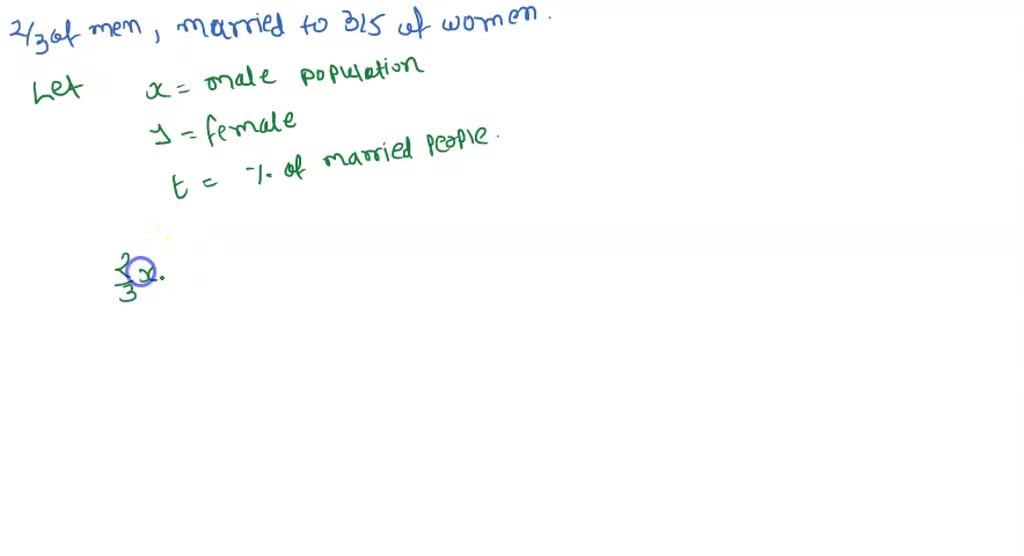 2/3 of men, married to 3/5 of women.
Let x = male population
y = female
t = % of married people.
2/3 x.